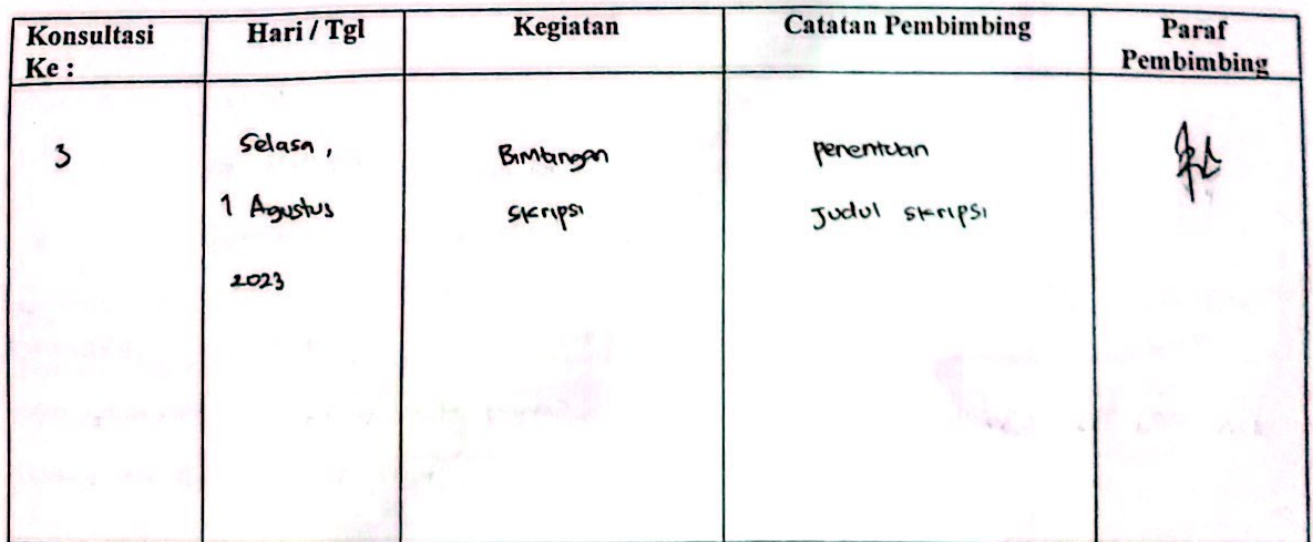 Konsultasi Ke :
Hari / Tgl
Kegiatan
Catatan Pembimbing
Paraf Pembimbing
3
Selasa ,
1 Agustus
2023
Bimbingan
Skripsi
Penentuan
Judul skripsi